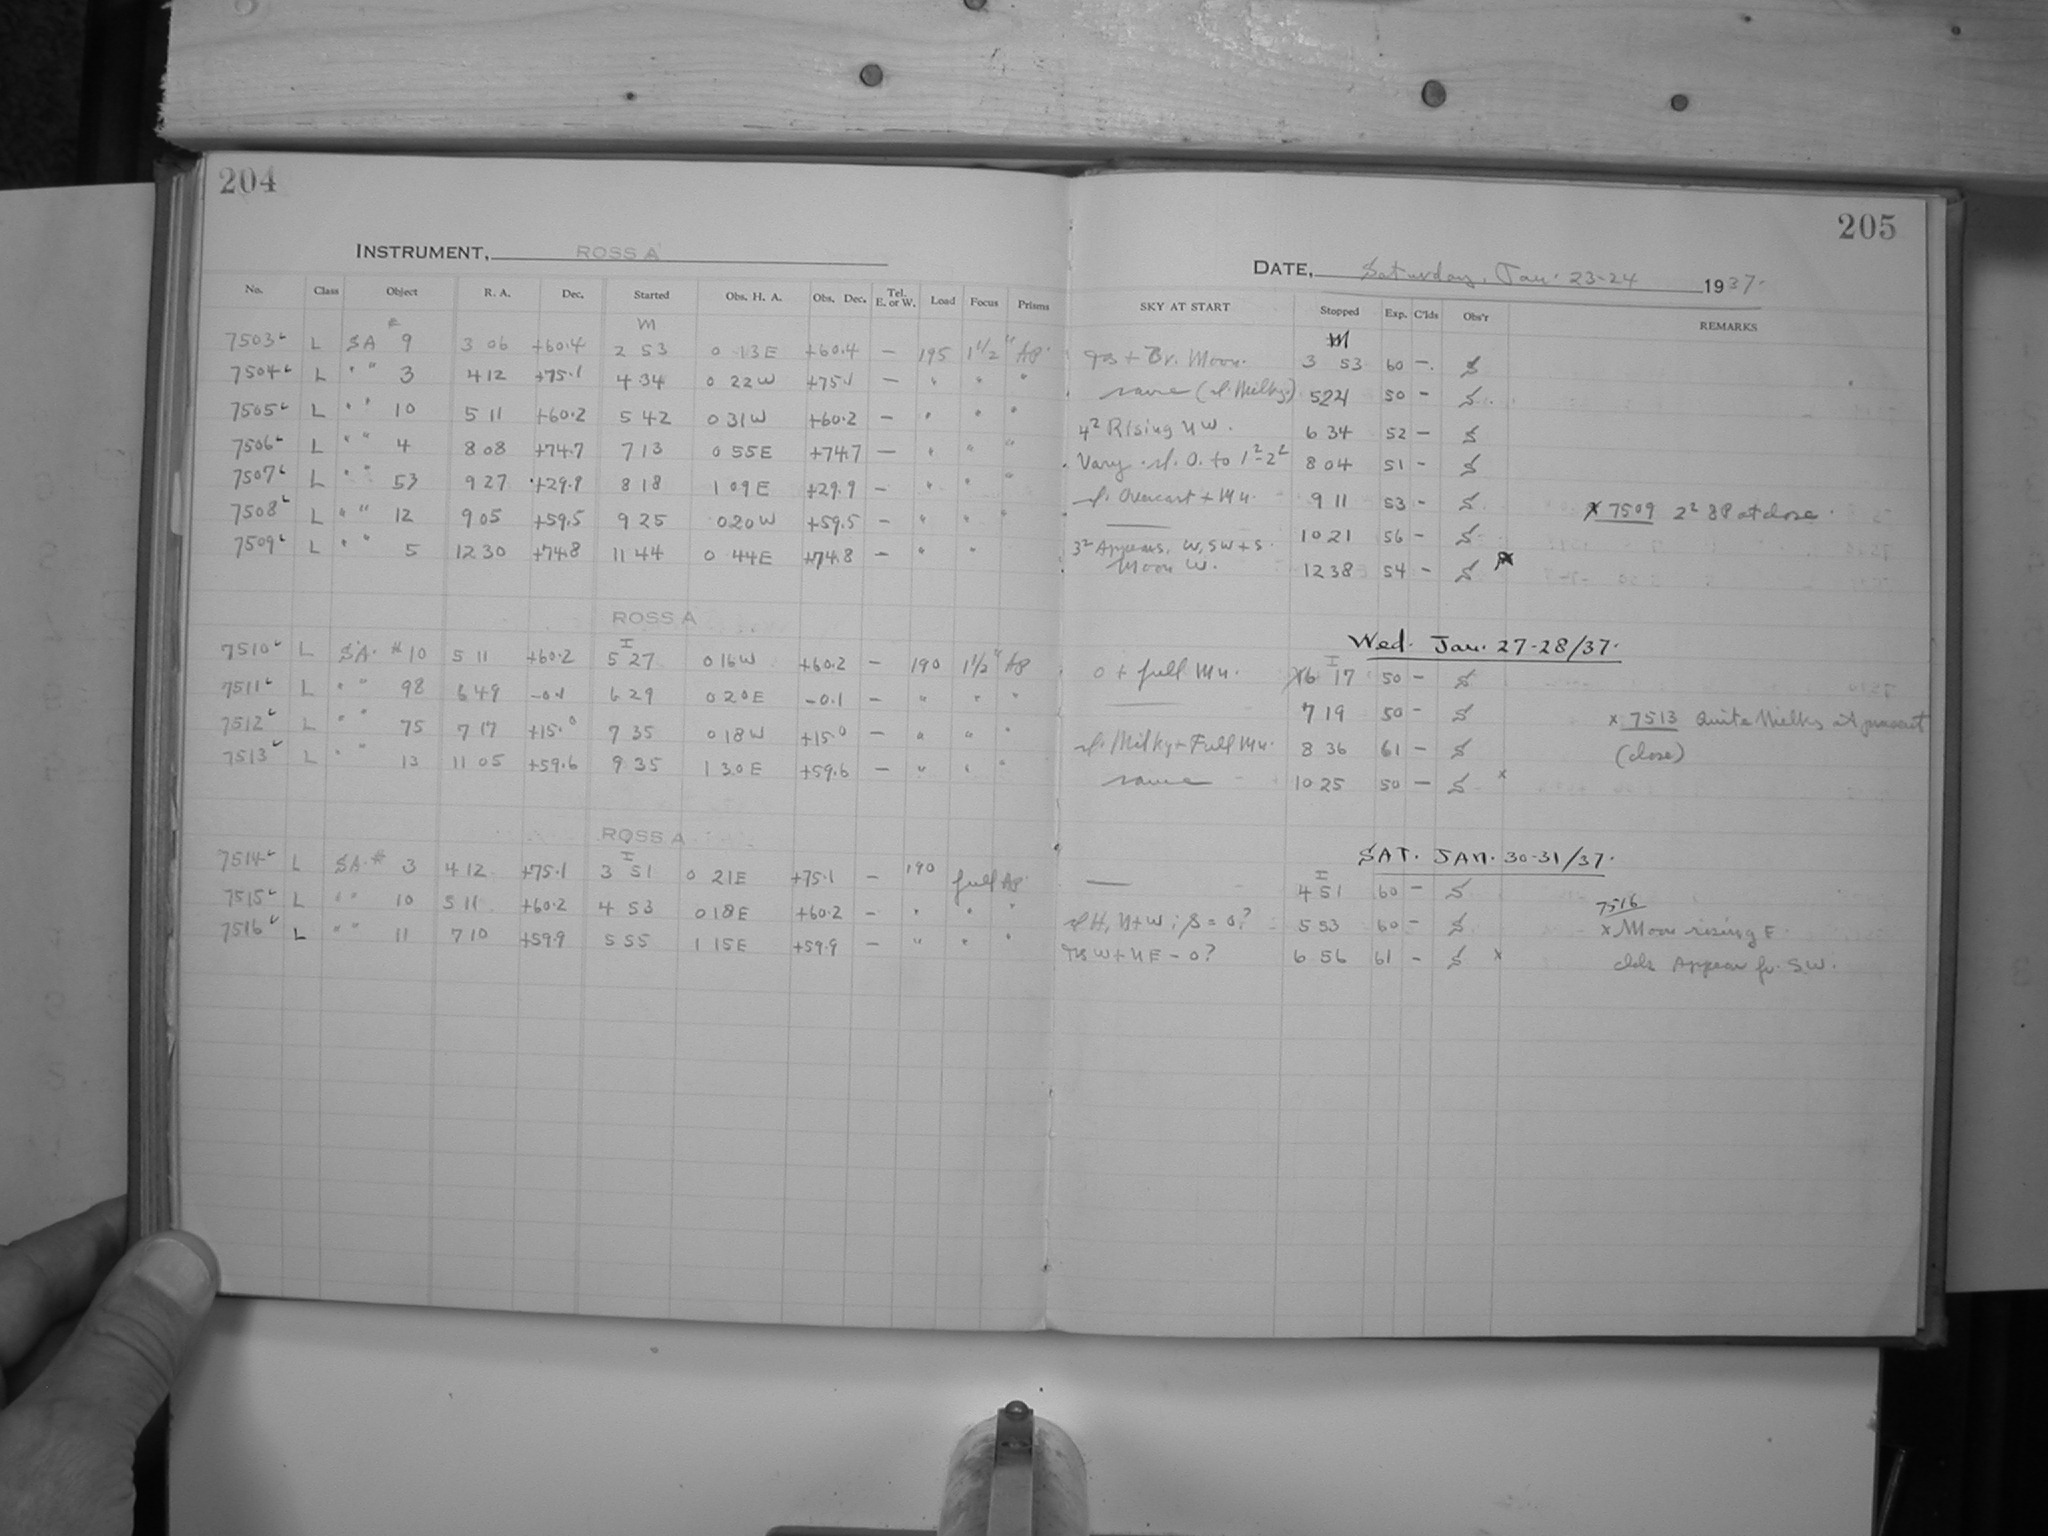 204
INSTRUMENT, ROSS A
No. Class Object R. A. Dec. Started Obs. H. A. Obs. Dec. Tel. E. or W. Load Focus Prisms
M
7503 L L SA # 9 3 06 +60.4 2 53 0 13E +60.4 — 195 1 1/2 " Ap.
7504 L L " " 3 4 12 +75.1 4 34 0 22W +75.1 — " " "
7505 L L " " 10 5 11 +60.2 5 42 0 31W +60.2 — " " "
7506 L L " " 4 8 08 +74.7 7 13 0 55E +74.7 — " " "
7507 L L " " 53 9 27 +29.9 8 18 1 09E +29.9 — " " "
7508 L L " " 12 9 05 +59.5 9 25 0 20W +59.5 — " " "
7509 L L " " 5 12 30 +74.8 11 44 0 44E +74.8 — " "
ROSS A
I
7510 L L SA. # 10 5 11 +60.2 5 27 0 16W +60.2 — 190 1 1/2 " Ap
7511 L L " " 98 6 49 -0.1 6 29 0 20E -0.1 — " " "
7512 L L " " 75 7 17 +15.0 7 35 0 18W +15.0 — " " "
7513 L L " " 13 11 05 +59.6 9 35 1 30E +59.6 — " " "
ROSS A
I
7514 L L SA. # 3 4 12 +75.1 3 51 0 21E +75.1 — 190 full Ap.
7515 L L " " 10 5 11 +60.2 4 53 0 18E +60.2 — " " "
7516 L L " " 11 7 10 +59.9 5 55 1 15E +59.9 — " " "
205
DATE, Saturday, Jan. 23-24 1937.
SKY AT START Stopped Exp. C'lds Obs'r REMARKS
M
+ Br. Moon. 3 53 60 — S
same (sl. Milky) 5 24 50 — S.
4² Rising NW. 6 34 52 — S
Vary. sl. O. to 1²-2² 8 04 51 — S
sl. Overcast + Mn. 9 11 53 — S x 7509 2² 8P at close.
—— 10 21 56 — S
3² Appears, W, SW + S.
Moon W. 12 38 54 — S x
Wed. Jan. 27-28/37.
I
0 + full Mn. 6 17 50 — S
—— 7 19 50 — S x 7513 Quite Milky at present
sl. Milky + Full Mn. 8 36 61 — S (close)
same 10 25 50 — S x
SAT. JAN. 30-31/37.
I
— 4 51 60 — S
7516
sl H, N+W; S = 0? 5 53 60 — S x Moon rising E
W + NE - 0? 6 56 61 — S x clds Appear fr. SW.